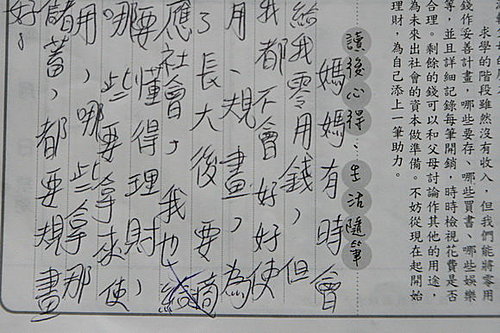 求學的階段雖然沒有收入，但我們能將零用
錢作妥善計畫，哪些要存、哪些買書、哪些娛樂
等，並且詳細記錄每筆開銷，時時檢視花費是否
合理。剩餘的錢可以和父母討論作其他的用途，
為未來出社會的資本做準備。不妨從現在起開始
理財，為自己添上一筆助力。
讀後心得：生活隨筆
媽媽有時會
給我零用錢，但
我都不會好好使
用、規畫，為
了長大後要適
應社會，我也
要懂得理財，
哪些要拿來使
用，哪些拿那
儲蓄，都要規畫
好。